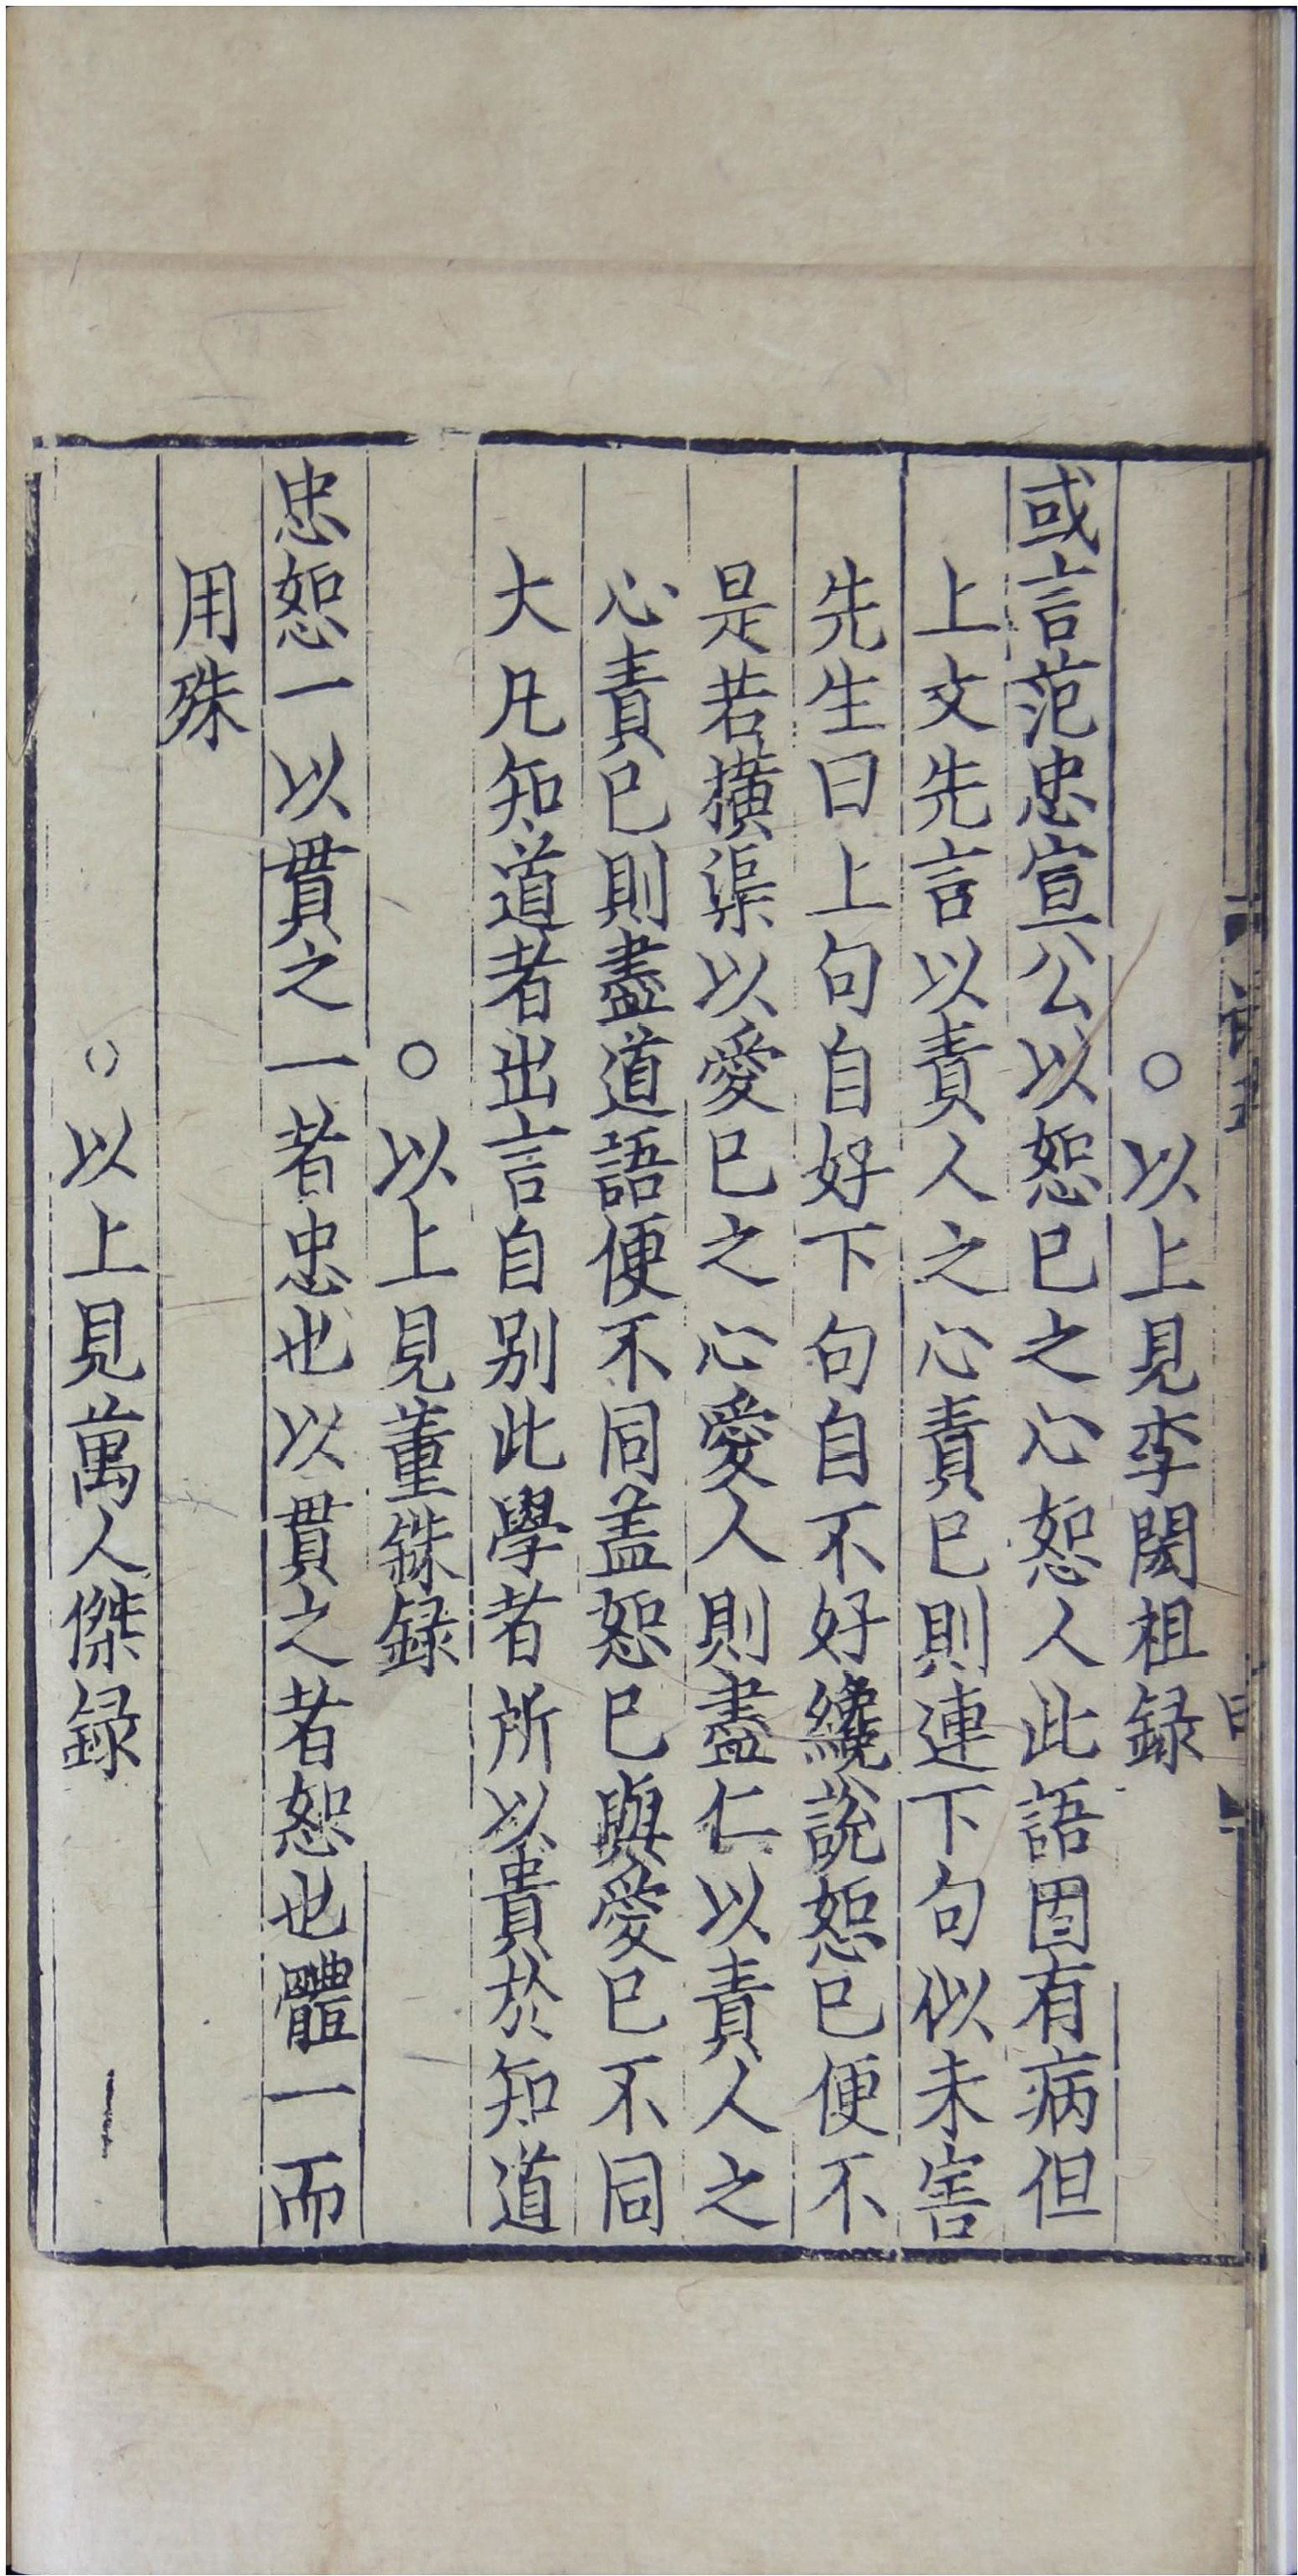 ○以上見李閎祖録
或言范忠宣公以恕已之心恕人此語固有病但
上文先言以責人之心責已則連下句似未害
先生曰上句自好下句自不好纔說恕已便不
是若撗渠以愛已之心愛人則盡仁以責人之
心責已則盡道語便不同盖恕已與愛已不同
大凡知道者出言自别此學者所以貴於知道
○以上見董銖録
忠恕一以貫之一者忠也以貫之者恕也體一而
用殊
○以上見萬人傑録